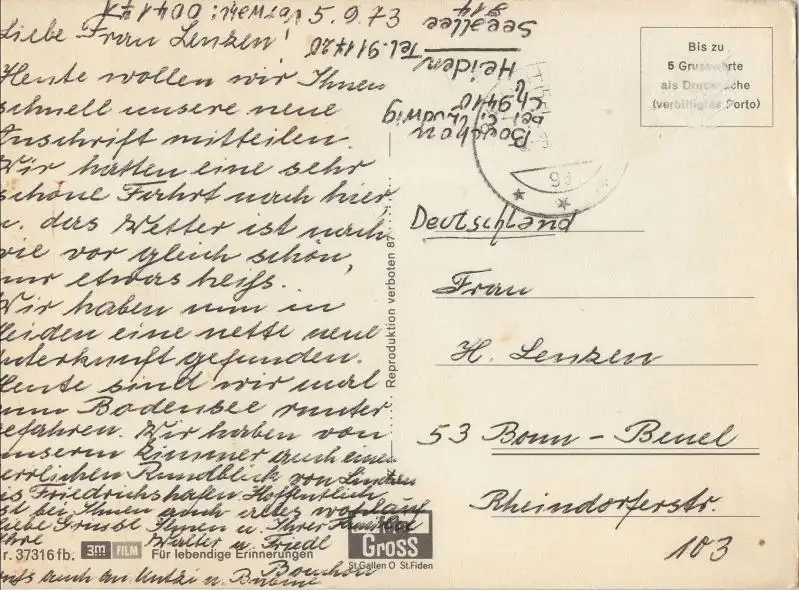 5.9.73
Liebe Frau Lenzen!
Heute wollen wir Ihnen
schnell unsere neue
Anschrift mitteilen.
Wir hatten eine sehr
schöne Fahrt nach hier
u. das Wetter ist nach
wie vor gleich schön,
nur etwas heiss.
Wir haben nun in
Heiden eine nette neue
Unterkunft gefunden.
Heute sind wir mal
zum Bodensee runter
gefahren. Wir haben von
unserm Zimmer auch einen
herrlichen Rundblick von Lindau
bis Friedrichshafen Hoffentlich
ist bei Ihnen auch alles wohlauf
Liebe Grüsse Ihnen u. Ihrer Familie
Ihre Walter u. Friedl
Bouchon
auch an u.
Bouchon
bei
CH 9410
Heiden
Seeallee
914
Tel. 911720
Vorwahl: 004171
Bis zu
5 Grussworte
als Drucksache
(verbilligtes Porto)
Deutschland
Frau
H. Lenzen
53 Bonn - Beuel
Rheindorferstr.
103
Reproduktion verboten 87
r. 37316 fb. 3M FILM Für lebendige Erinnerungen
Gross
St.Gallen O St.Fiden